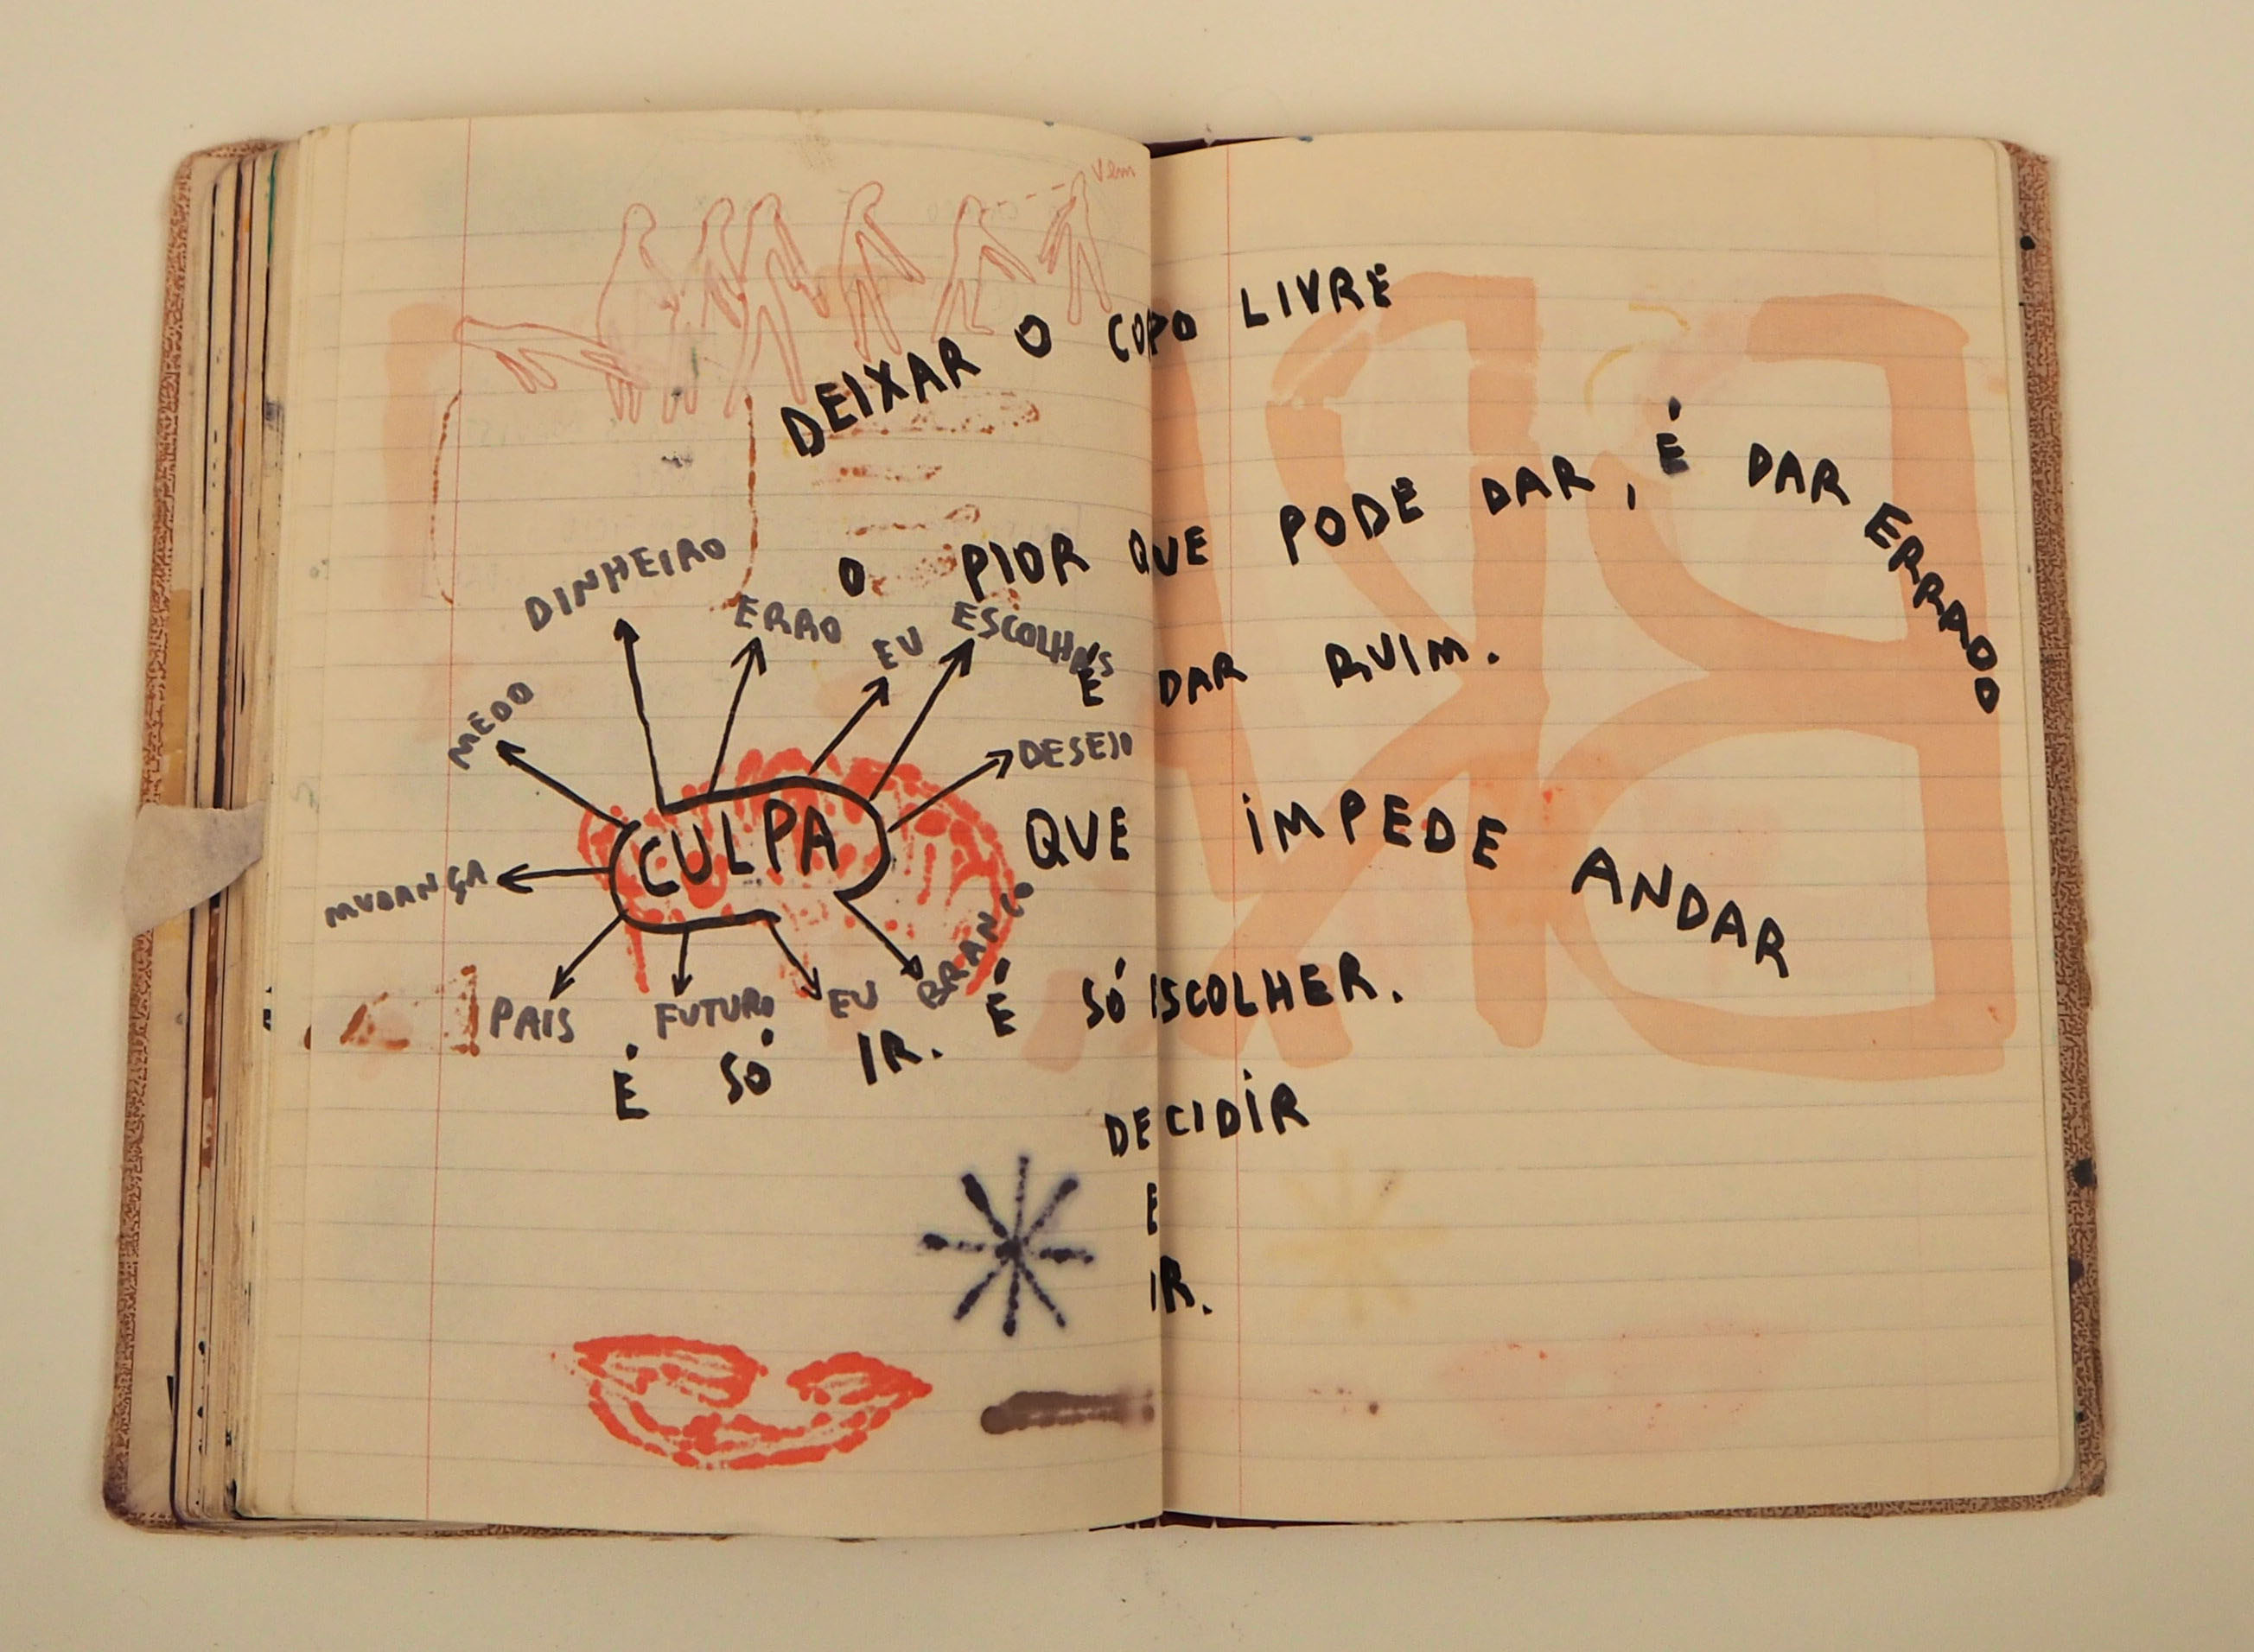 Vem
DEIXAR O COPO LIVRE
O PIOR QUE PODE DAR, É DAR ERRADO
É DAR RUIM.
DINHEIRO
ERRO
EU
ESCOLHAS
MEDO
DESEJO
CULPA QUE IMPEDE ANDAR
MUDANÇA
BRANCO
PAIS
FUTURO
EU
É SÓ IR. É SÓ ESCOLHER.
DECIDIR
E
IR.